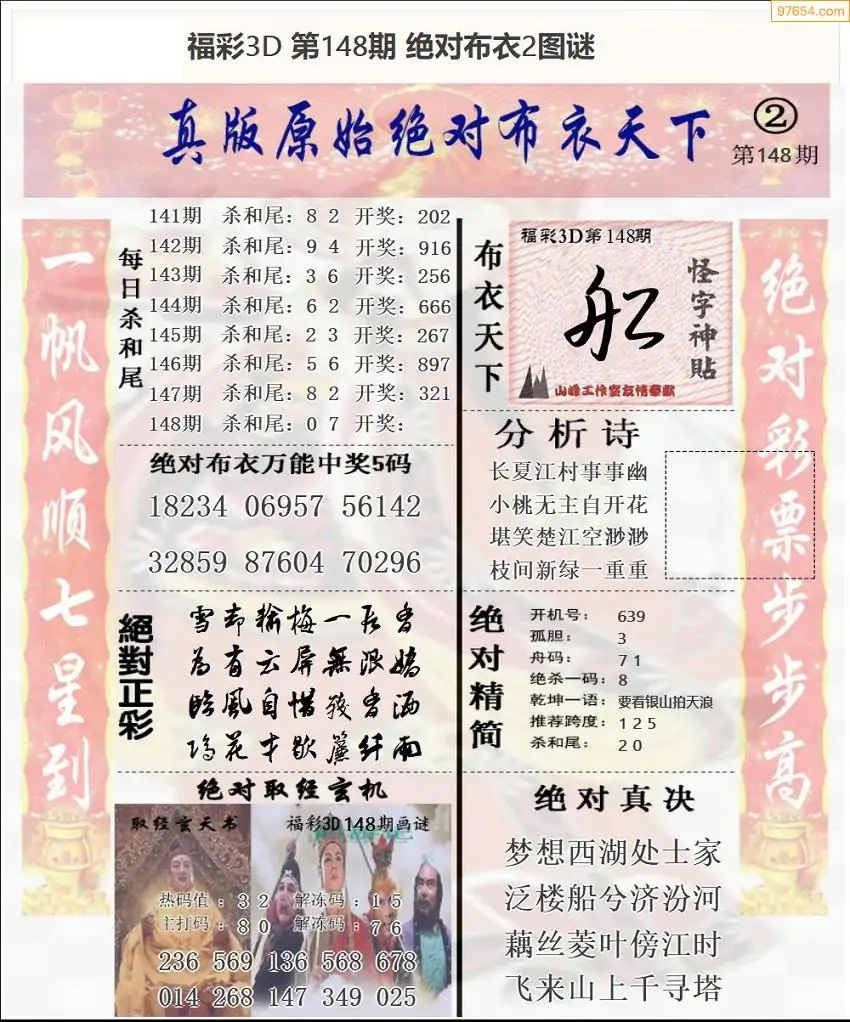 97654.com
福彩3D 第148期 绝对布衣2图谜
真版原始绝对布衣天下
②
第148期
一帆风顺七星到
每日杀和尾
141期 杀和尾：8 2 开奖：202
142期 杀和尾：9 4 开奖：916
143期 杀和尾：3 6 开奖：256
144期 杀和尾：6 2 开奖：666
145期 杀和尾：2 3 开奖：267
146期 杀和尾：5 6 开奖：897
147期 杀和尾：8 2 开奖：321
148期 杀和尾：0 7 开奖：
绝对布衣万能中奖5码
18234 06957 56142
32859 87604 70296
絕對正彩
雪却输梅一段香
為有云屏無限嬌
臨風自惜殘香洒
鳩花才歇簾纤雨
绝对取经玄机
取经玄天书
福彩3D148期画谜
热码值：3 2 解冻码：1 5
主打码：8 0 解冻码：7 6
236 569 136 568 678
014 268 147 349 025
布衣天下
福彩3D第148期
怪字神贴
山峰工作室友情奉献
分析诗
长夏江村事事幽
小桃无主自开花
堪笑楚江空渺渺
枝间新绿一重重
绝对精简
开机号：639
孤胆：3
舟码：7 1
绝杀一码：8
乾坤一语：要看银山拍天浪
推荐跨度：1 2 5
杀和尾：2 0
绝对真决
梦想西湖处士家
泛楼船兮济汾河
藕丝菱叶傍江时
飞来山上千寻塔
绝对彩票步步高